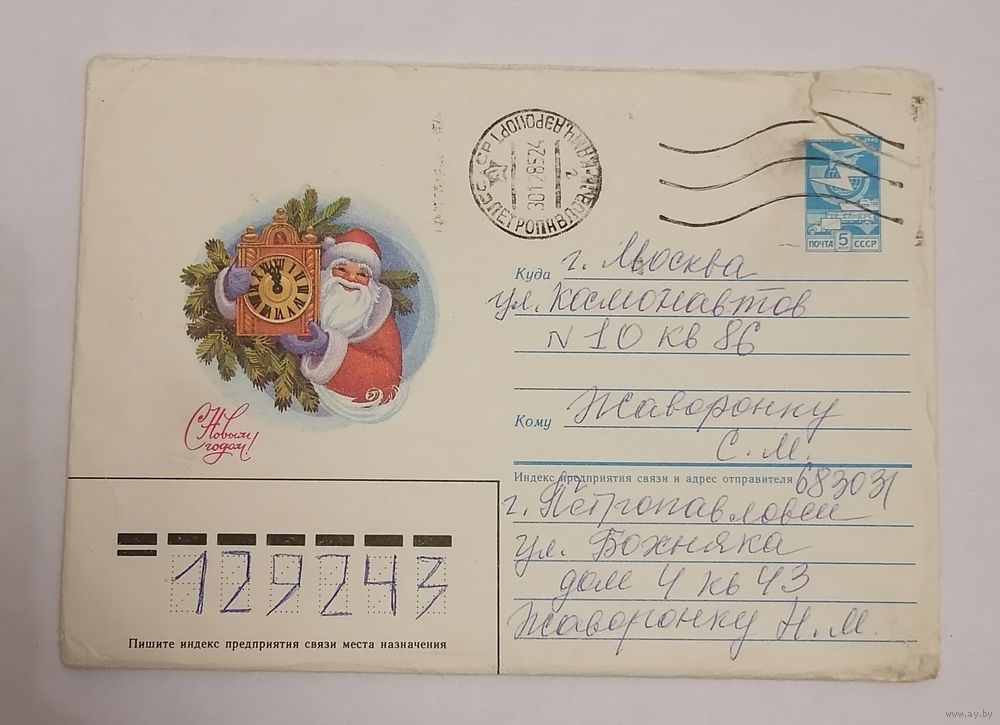 СССР ПЕТРОПАВЛОВСК-КАМЧ. АЭРОПОРТ
30128524
ПОЧТА 5 СССР
Куда г. Москва
ул. Космонавтов
N 10 кв 86
Кому Жаворонку
С. М.
С Новым
годом!
Индекс предприятия связи и адрес отправителя 683031
г. Петропавловск
ул. Бохняка
дом 4 кв 43
Жаворонку Н. М.
129243
Пишите индекс предприятия связи места назначения
www.ay.by